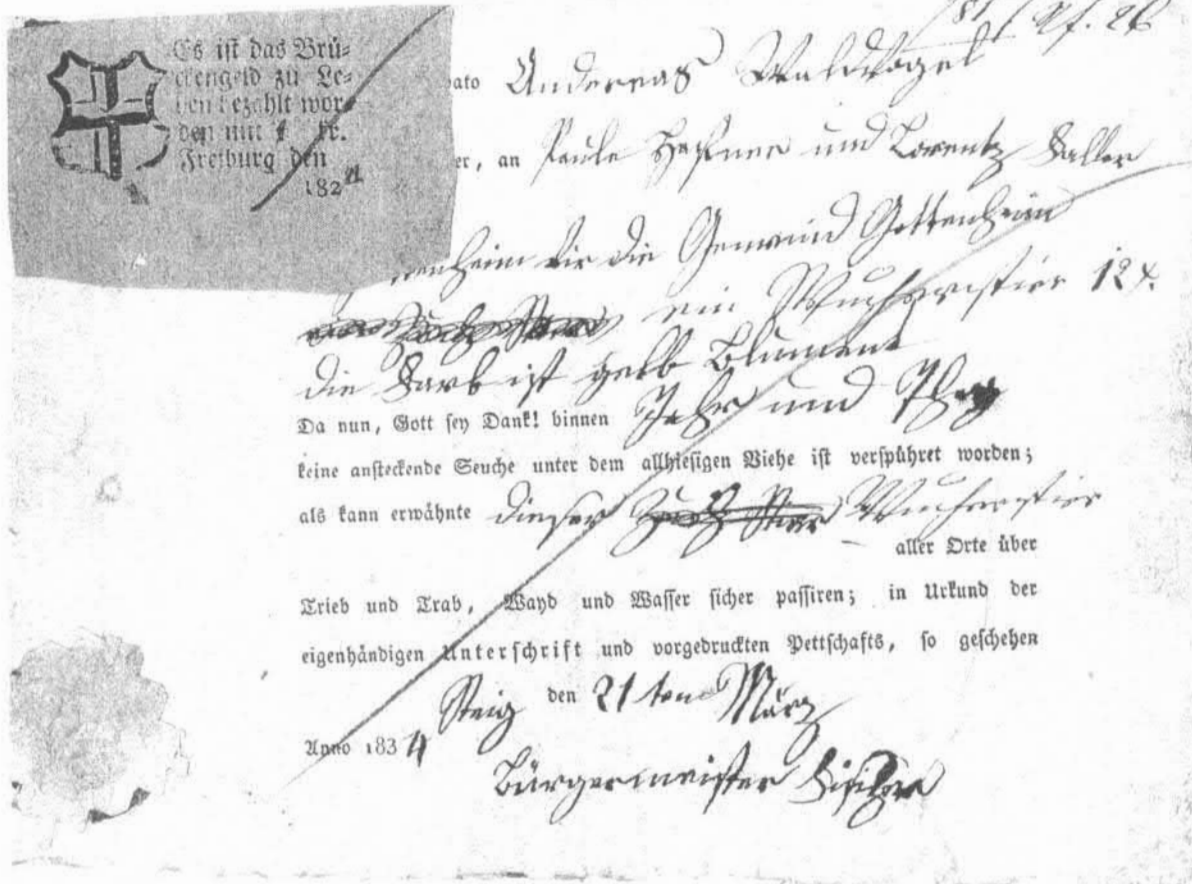 Es ist das Brü-
ckengeld zu Le-
hen bezahlt wor-
den mit kr.
Freiburg den
182
81
ato Andereas Waldvogel
er, an Paule Hessner und Lorentz Faller
enheim vir die Gemeind Gottenheim
ein Wucherstier 12
die Farb ist gelb Blument
Da nun, Gott sey Dank! binnen Jahr und Thag
keine ansteckende Seuche unter dem allhiesigen Viehe ist verspühret worden;
als kann erwähnte dieser Wucherstier
aller Orte über
Trieb und Trab, Wayd und Wasser sicher passiren; in Urkund der
eigenhändigen Unterschrift und vorgedruckten Pettschafts, so geschehen
Steig den 21 ten März
Anno 1834
Bürgermeister